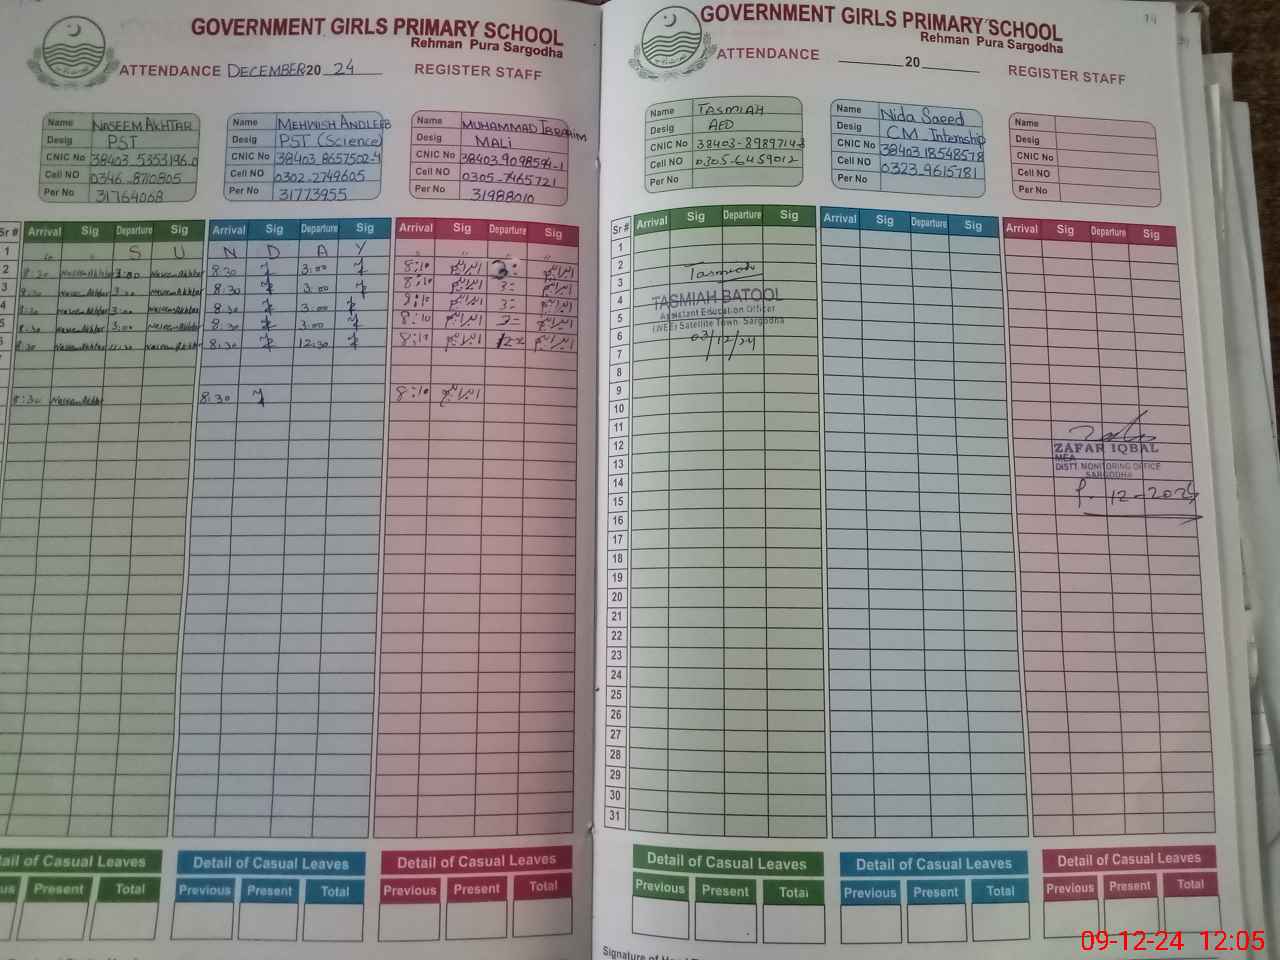 GOVERNMENT GIRLS PRIMARY SCHOOL
Rehman Pura Sargodha
ATTENDANCE DECEMBER 20 24 REGISTER STAFF
Name NASEEM AKHTAR
Desig PST
CNIC No 38403 5353196.0
Cell NO 0346 8710805
Per No 31764068
Name MEHWISH ANDLEEB
Desig PST (Science)
CNIC No 38403 8657502-4
Cell NO 0302-2749605
Per No 31773955
Name MUHAMMAD IBRAHIM
Desig MALI
CNIC No 38403.9098594-1
Cell NO 0305-7465721
Per No 31988010
Sr # Arrival Sig Departure Sig Arrival Sig Departure Sig Arrival Sig Departure Sig
1 S U N D A Y
2 8:30 Naseem Akhtar 3:00 Naseem Akhtar 8:30 3:00 8:10 ابراہیم 3: ابراہیم
3 8:30 Naseem Akhtar 3:00 Naseem Akhtar 8:30 3:00 8:10 ابراہیم 3: ابراہیم
4 8:30 Naseem Akhtar 3:00 Naseem Akhtar 8:30 3:00 8:10 ابراہیم 3: ابراہیم
5 8:30 Naseem Akhtar 3:00 Naseem Akhtar 8:30 3:00 8:10 ابراہیم 3: ابراہیم
8:30 Naseem Akhtar Naseem Akhtar 8:30 12:30 8:10 ابراہیم ابراہیم
8:30 Naseem Akhtar 8:30 8:10 ابراہیم
Detail of Casual Leaves
Present Total
Detail of Casual Leaves
Previous Present Total
Detail of Casual Leaves
Previous Present Total
GOVERNMENT GIRLS PRIMARY SCHOOL
Rehman Pura Sargodha
ATTENDANCE ________20________ REGISTER STAFF
Name TASMIAH
Desig AEO
CNIC No 38403-8989714-3
Cell NO 0305-6459012
Per No
Name Nida Saeed
Desig CM Internship
CNIC No 38403 18548578
Cell NO 0323-9615781
Per No
Name
Desig
CNIC No
Cell NO
Per No
Sr # Arrival Sig Departure Sig Arrival Sig Departure Sig Arrival Sig Departure Sig
1
2
3
4
5
6
7
8
9
10
11
12
13
14
15
16
17
18
19
20
21
22
23
24
25
26
27
28
29
30
31
Tasmiah
TASMIAH BATOOL
Assistant Education Officer
(WEE) Satelite Town, Sargodha
03/12/24
ZAFAR IQBAL
MEA
DISTT. MONITORING OFFICE
SARGODHA
9-12-2024
Detail of Casual Leaves
Previous Present Total
Detail of Casual Leaves
Previous Present Total
Detail of Casual Leaves
Previous Present Total
Signature of
09-12-24 12:05